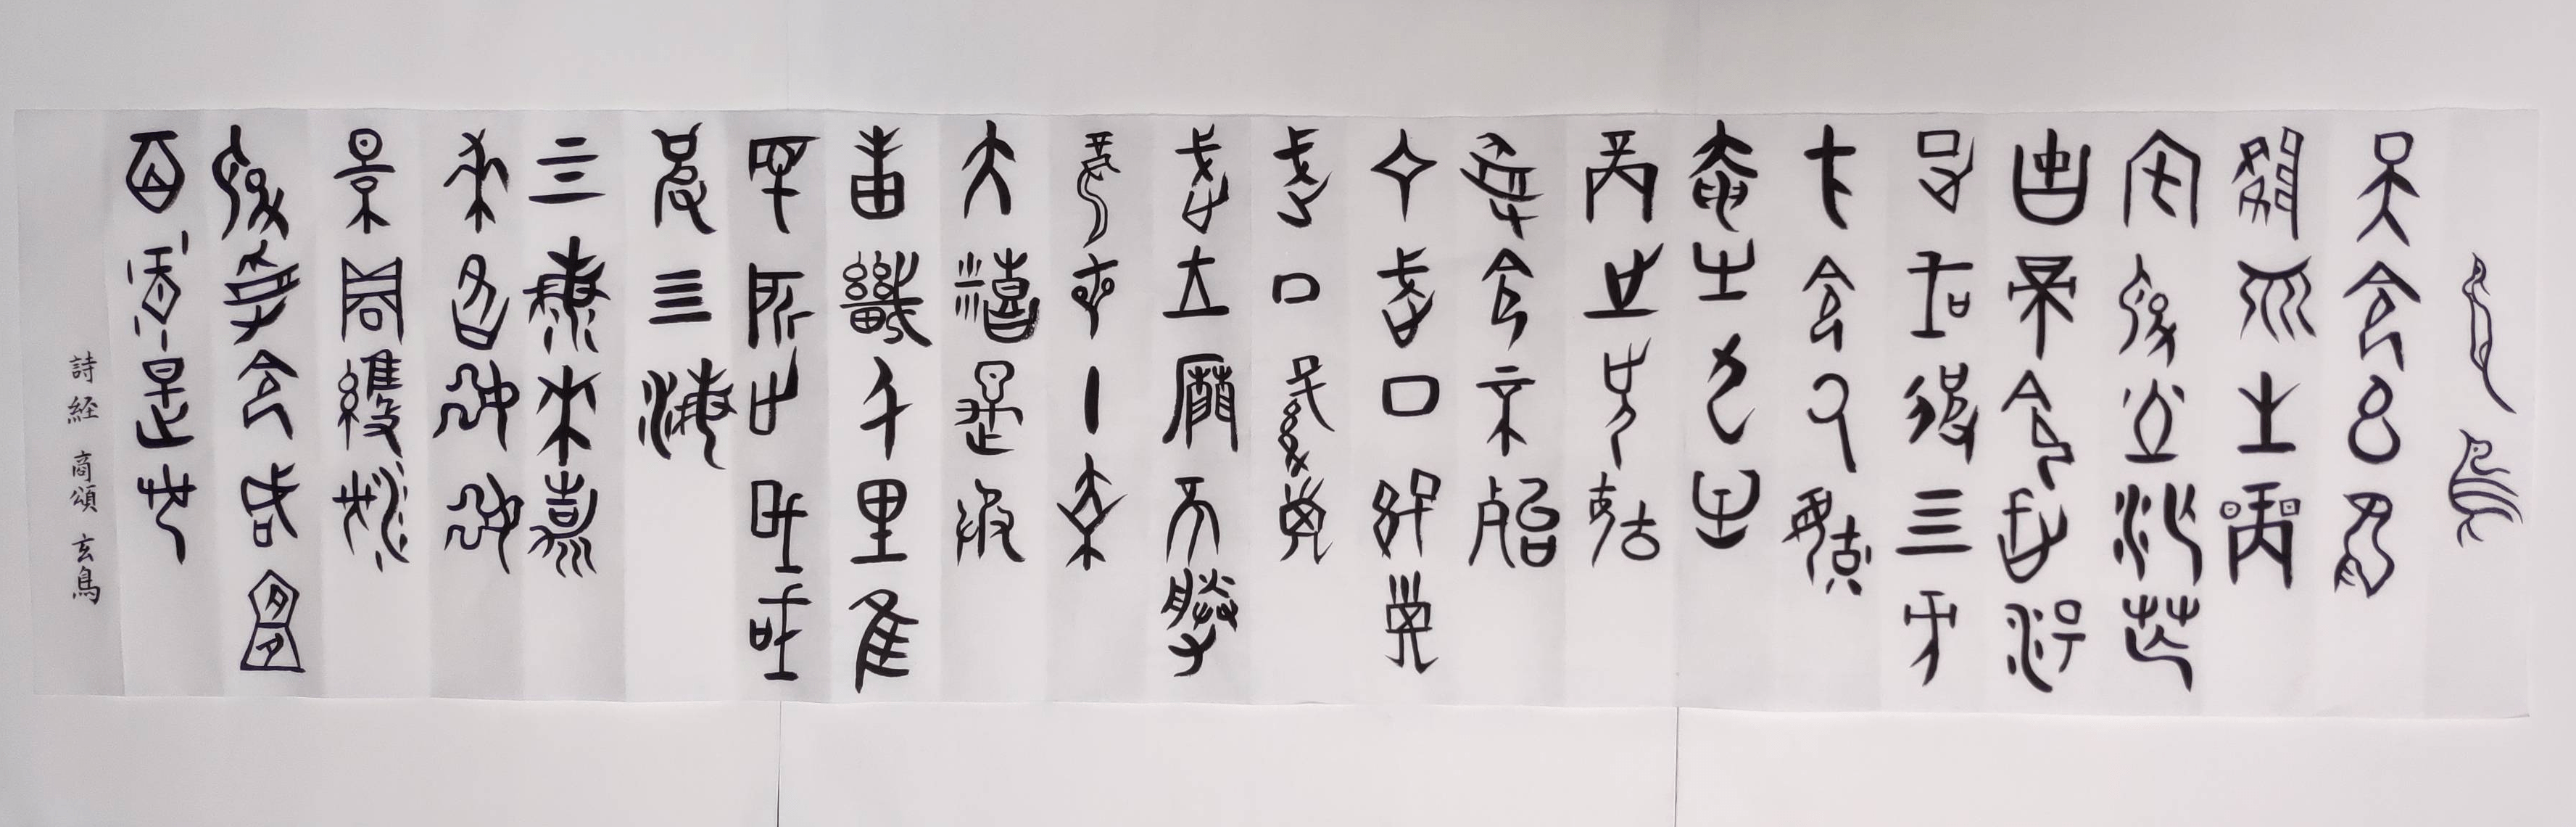 玄鳥
天命玄鳥
降而生商
宅殷土芒芒
古帝命武湯
正域彼四方
方命厥后
奄有九有
商之先后
受命不殆
在武丁孫子
武丁孫子
武王靡不勝
龍旂十乘
大糦是承
邦畿千里維
民所止肇域
彼四海
四海來假
來假祁祁
景員維河
殷受命咸宜
百祿是何
詩経 商頌 玄鳥